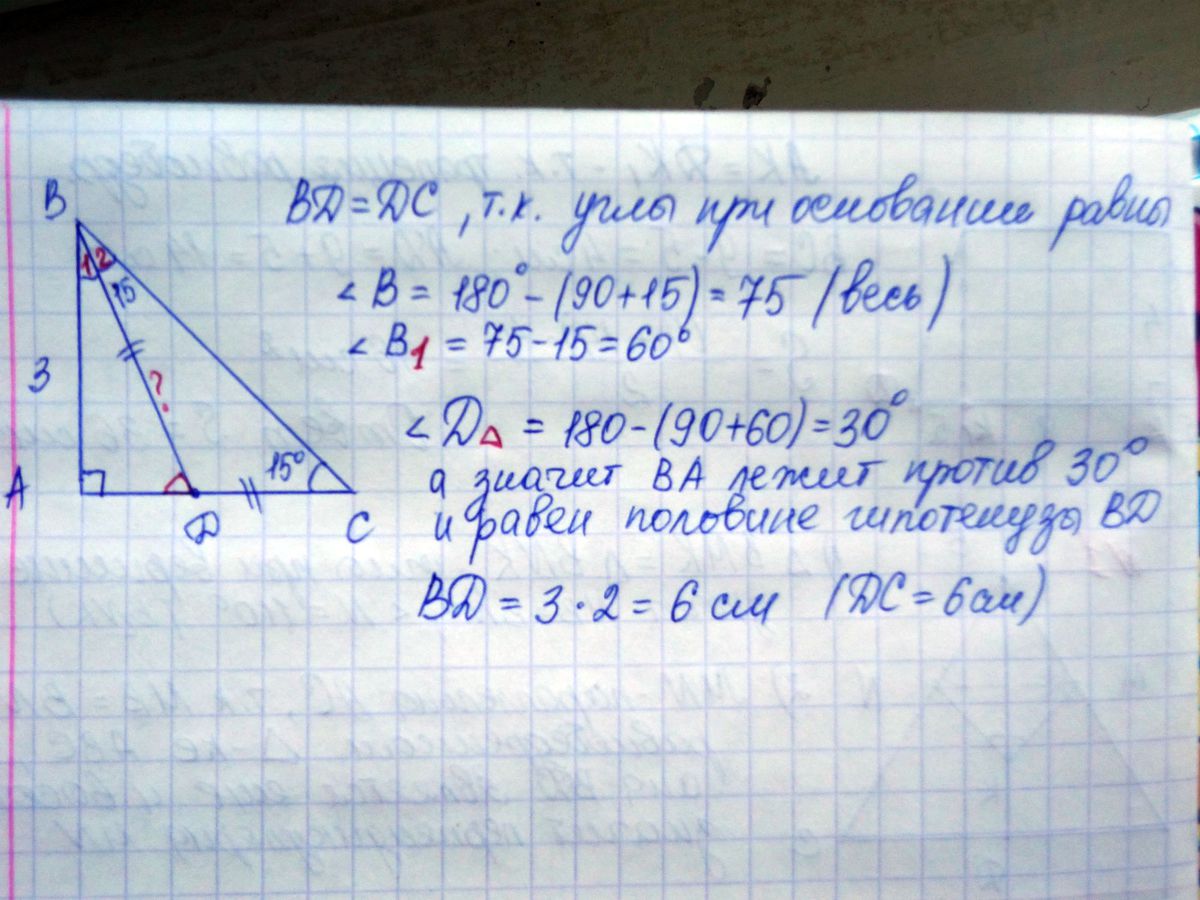 BD = DC , т.к. углы при основании равны
∠ B = 180° - (90+15) = 75 (весь)
∠ B1 = 75-15 = 60°
∠ D△ = 180-(90+60) = 30°
а значит BA лежит против 30°
и равен половине гипотенузы BD
BD = 3 · 2 = 6 см (DC = 6 см)
B
1 2
15
3
?
A
15°
D
C